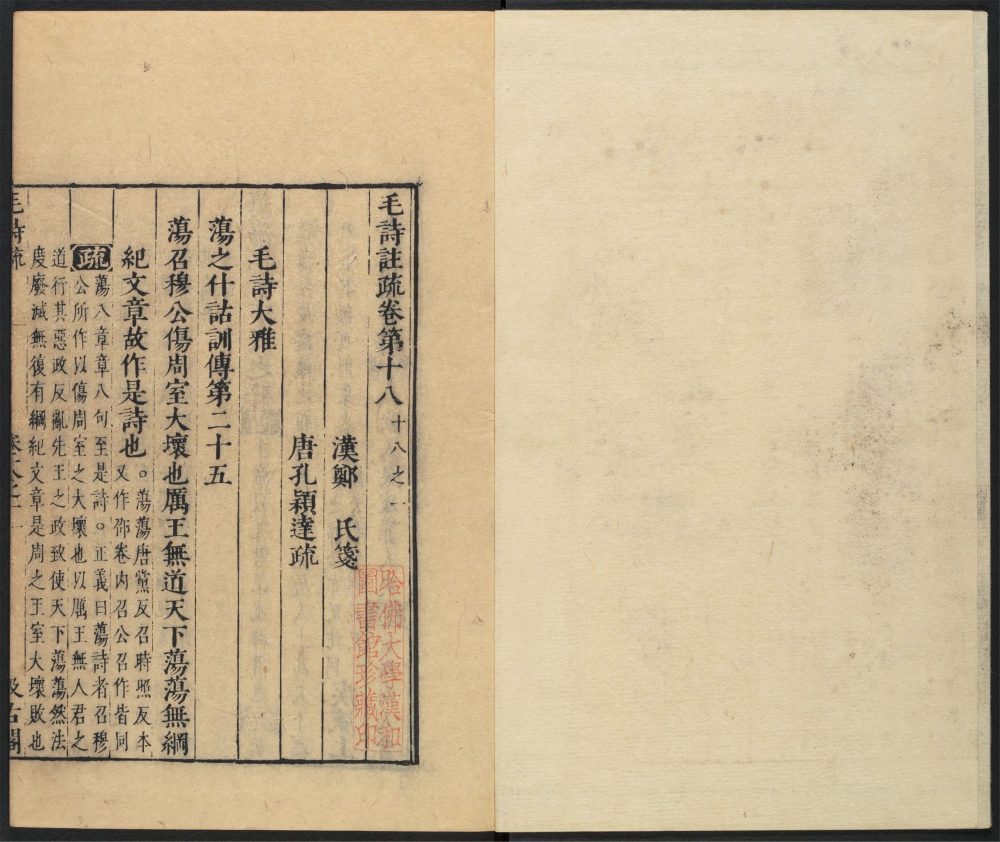 毛詩註疏卷第十八 十八之一
漢鄭 氏箋
唐孔穎達疏
毛詩大雅
蕩之什詁訓傳第二十五
蕩召穆公傷周室大壞也厲王無道天下蕩蕩無綱
紀文章故作是詩也。蕩蕩唐黨反召時照反本
又作邵卷內召公召作皆同
疏蕩八章章八句至是詩。正義曰蕩詩者召穆
公所作以傷周室之大壞也以厲王無人君之
道行其惡政反亂先王之政致使天下蕩蕩然法
度廢滅無復有綱紀文章是周之王室大壞敗也
毛詩疏 卷十八之一 汲古閣
哈佛大學漢和
圖書館珍藏印